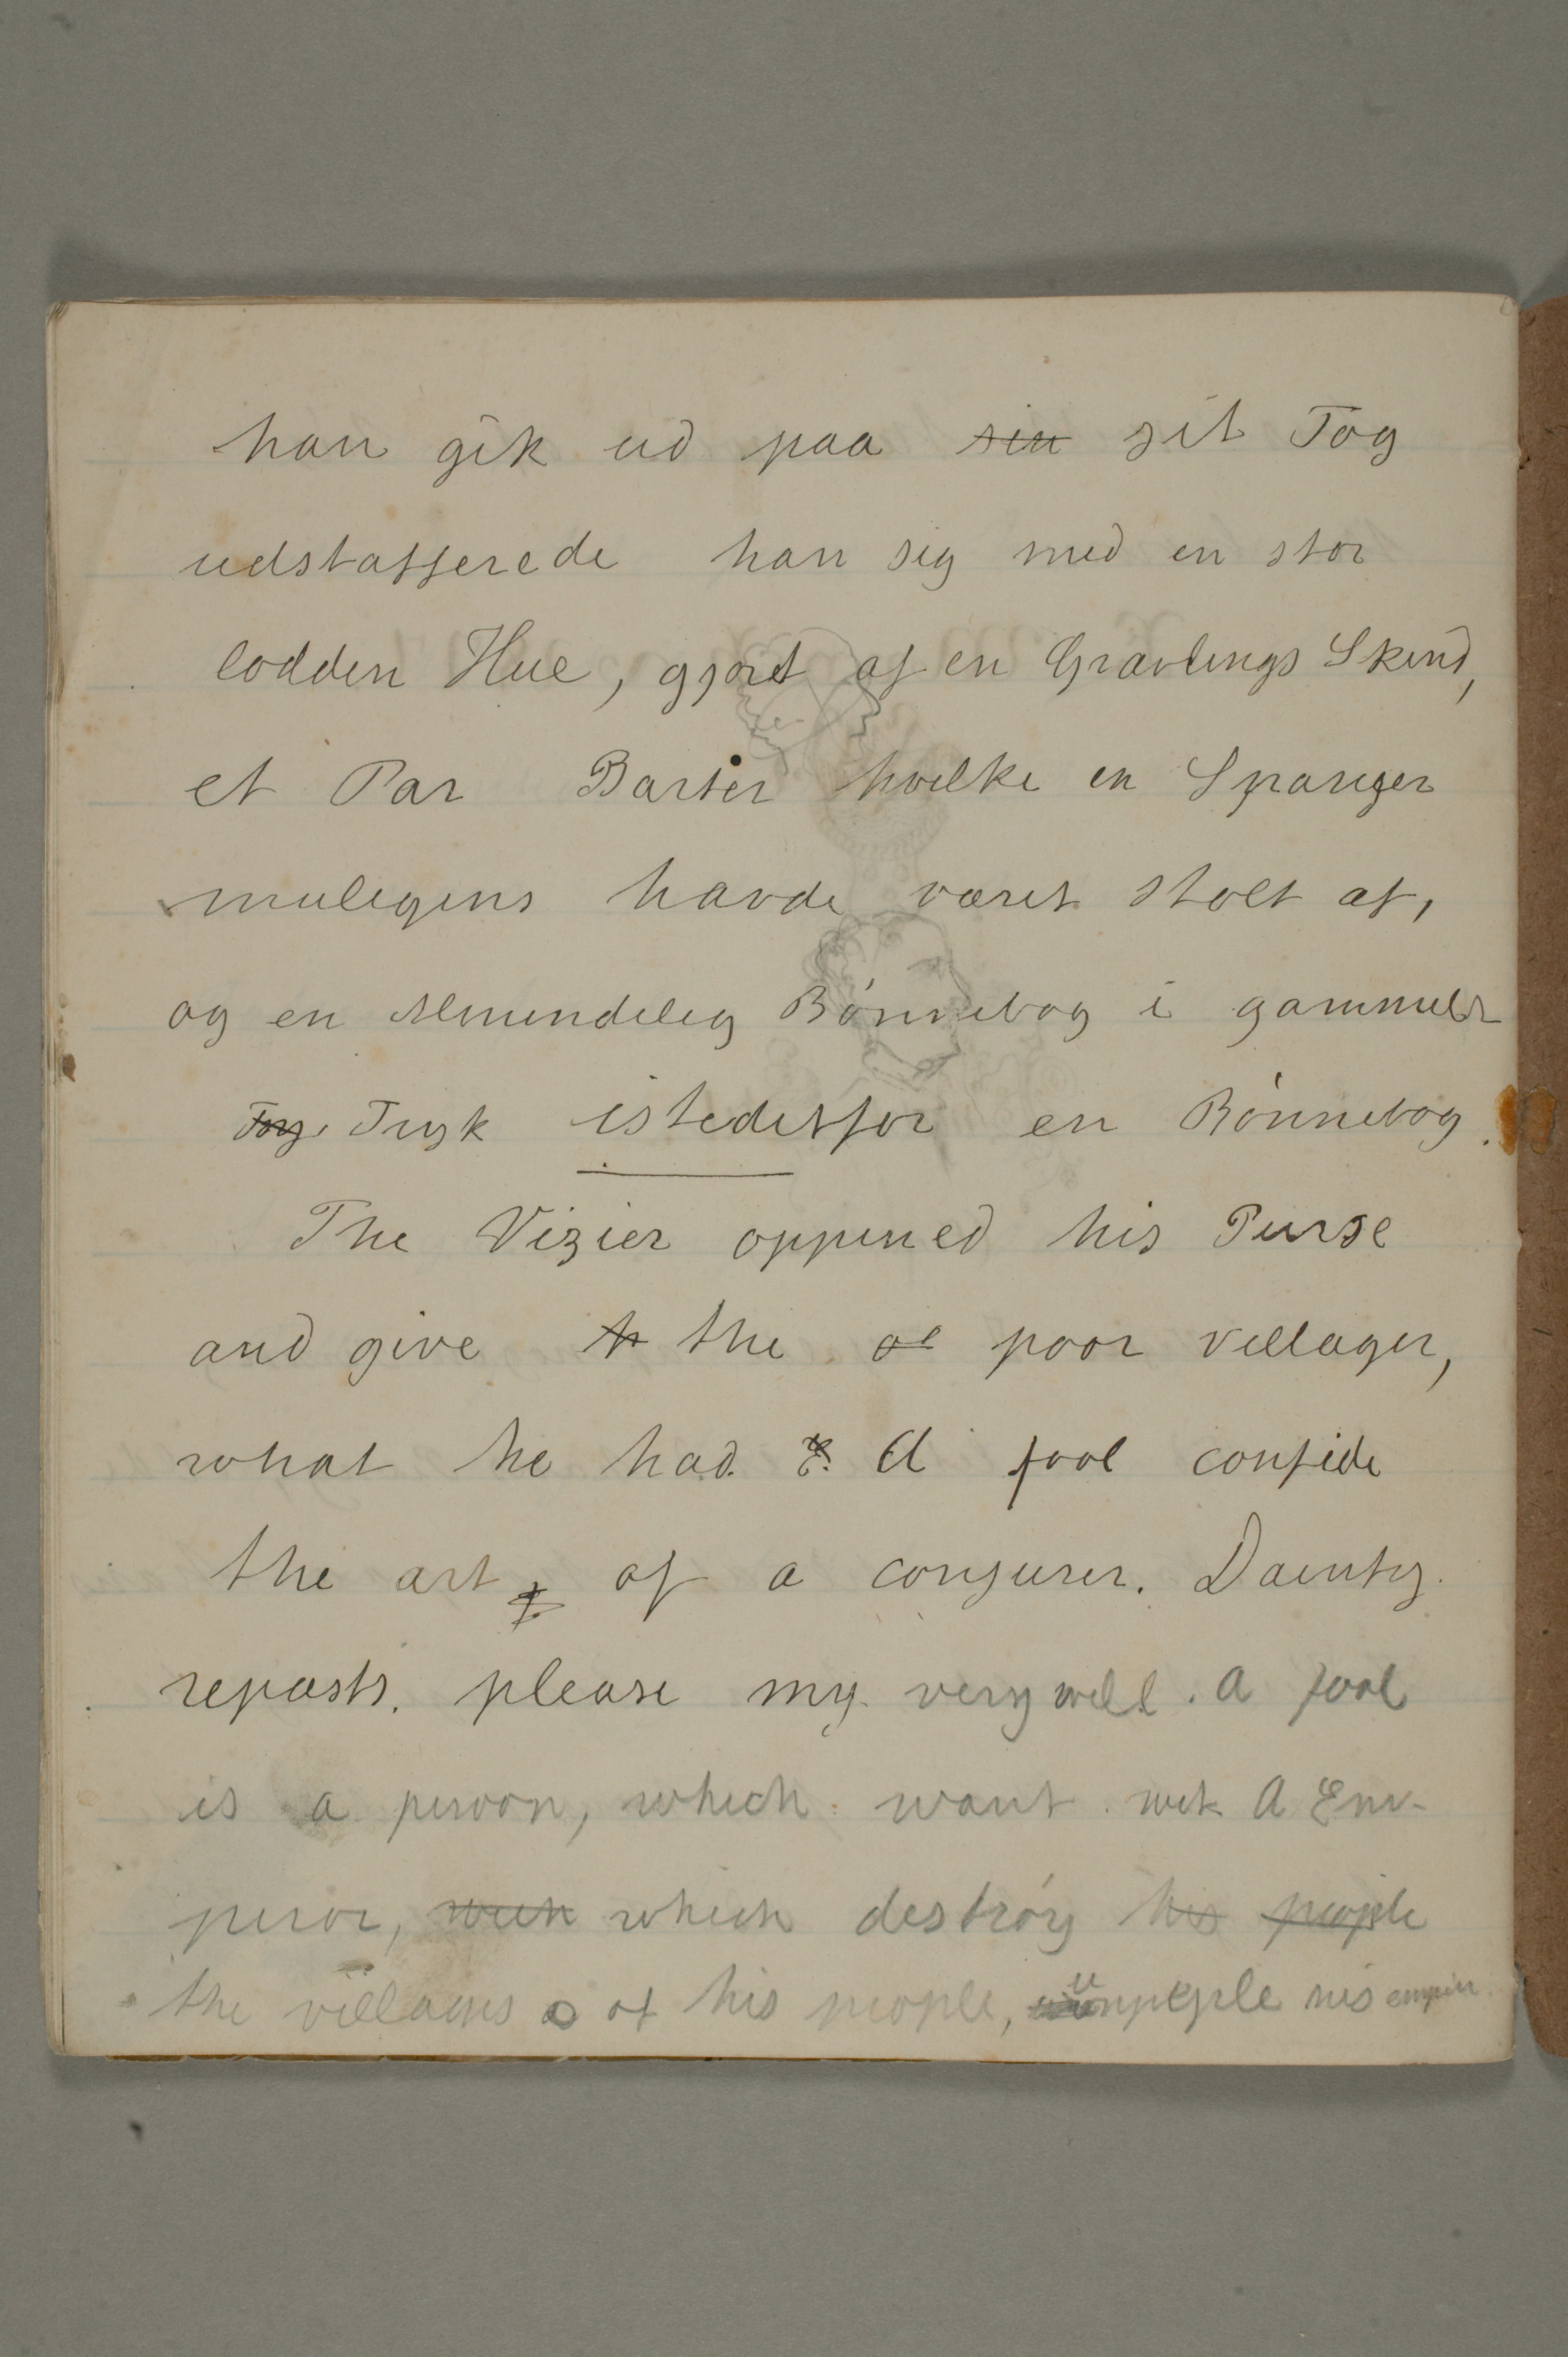 han gik ud paa sin sit Tog
udstafferede han sig med en stor
lodden Hue, gjort af en Grævlings Skind,
et Par Barter hvilke en Spanger
muligens havde været stolt af,
og en Almindelig Bónnebog i gammelt
Tryk istedetfor en Bónnebog.
The Vizier oppened his Purse
and give th the ol poor villager,
what he had. A fool confide
the art of a conjurer. Dainty
repasts. please my very well. A fool
is a person, which want wit A Em-
peror, which destróy his people
the villages of his people, unpeple his empire.